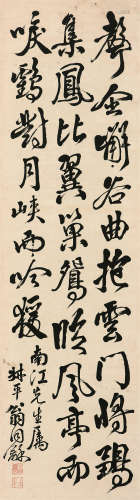 聲含嶰谷曲抱雲門將鶵
集鳳比翼巢鴛臨風亭而
唳鶴對月峽而吟猨
南江先生屬
叔平翁同龢